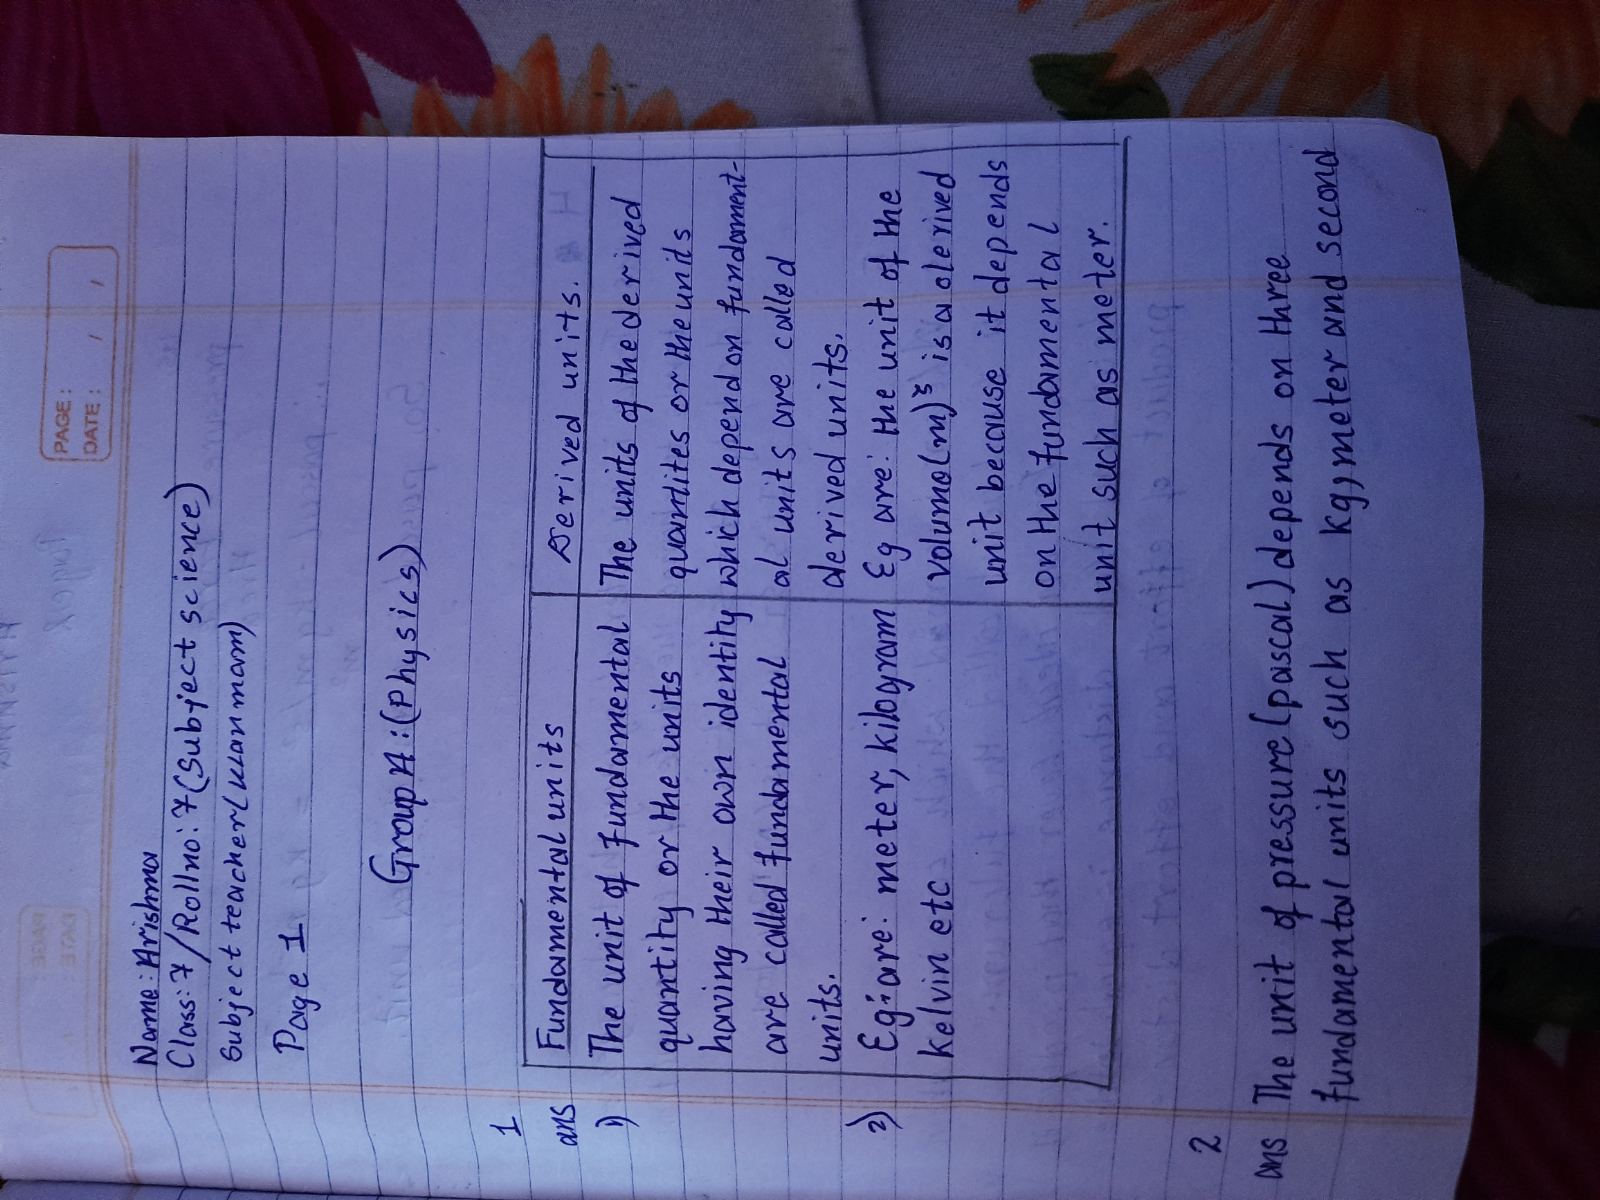 PAGE:
DATE: / /
Name: Arishma
Class: 7 / Roll no: 7 (Subject science)
Subject teacher( mam)
Page 1
Group A: (Physics)
1
ans
Fundamental units
Derived units.
1) The unit of fundamental
quantity or the units
having their own identity
are called fundamental
units.
The units of the derived
quantites or the units
which depend on fundament-
al units are called
derived units.
2) Eg: are: meter, kilogram
kelvin etc
Eg are: the unit of the
volume(m)³ is a derived
unit because it depends
on the fundamental
unit such as meter.
2
ans The unit of pressure (pascal) depends on three
fundamental units such as kg, meter and second